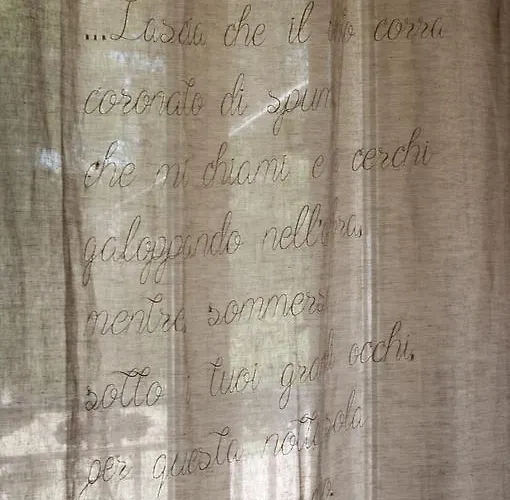 ...Lascia che il corra
coronato di
che mi chiami e cerchi
galoppando nell'ombra,
mentre
sotto i tuoi grandi occhi,
per questa notte sola